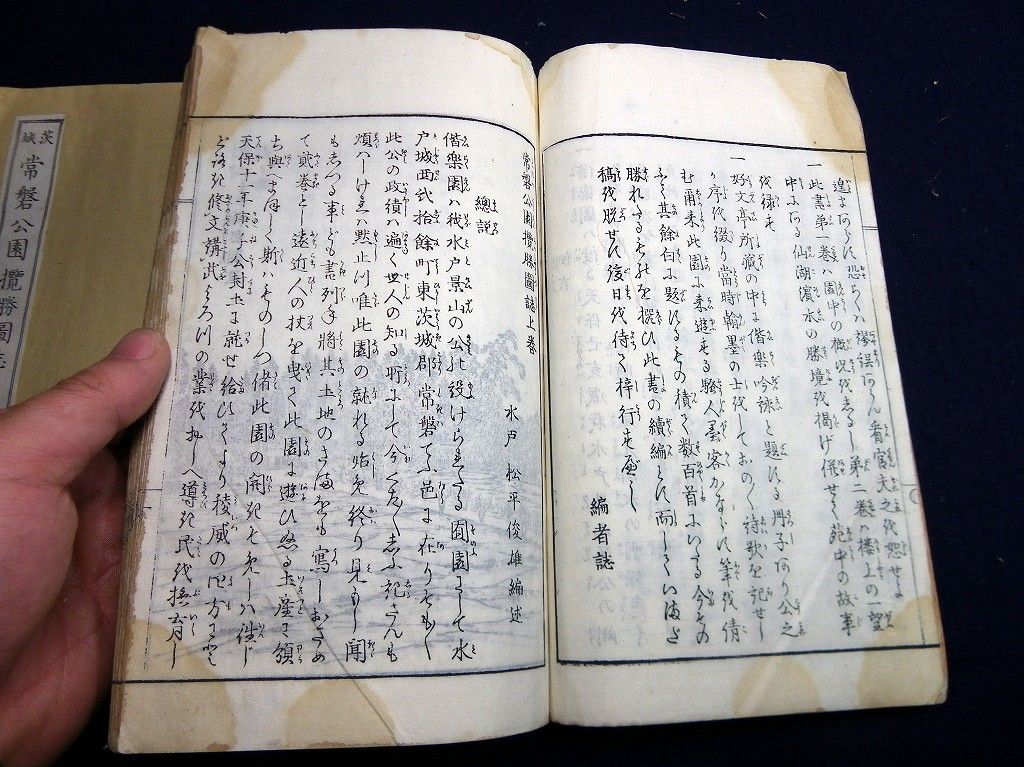 遑まあらず恐らくハ謬誤あらん看官夫之を恕せよ
一此書第一巻ハ園中の概況を志るし第二巻ハ楼上の一望
中にある仙湖濱水の勝境を掲げ併せて苑中の故事
を録も
一好文亭所蔵の中に偕樂吟詠と題する冊子あり公之
が序を綴り當時翰墨の士をしておの〳〵詩歌を記せし
む爾来此園に来遊する騒人墨客かならず筆を倩
ふて其餘白に題するもの積て数百首にいたる今その
勝れたるものを撰び此書の續編とす而していまだ
稿を脱せず後日を待て梓行すべし
編者誌
常磐公園攬勝圖誌上巻
水戸 松平俊雄編述
總説
偕樂園ハ我水戸景山の公の設けられたる囿園にして水
戸城西弐拾餘町東茨城郡常磐てふ邑に在りそも〳〵
此公の政績ハ遍く世人の知る所にして今くだ〳〵志く記さんも
煩ハしけれハ黙止つ唯此園の就れる始め終り見もし聞
もしつる事ども書列ね将其土地のさまをも寫しおさめ
て貳巻とし遠近人の杖を曳て此園に遊ひぬる土産に頒
ち與へまほしく斯ハものしつ偖此園の開起せしハ往じ
天保十一年庚子公封土に就せ給ひてより稜威の四方に
とゞろき修文講武よろづの業をおしへ導き民を撫育し
茨城
常磐公園攬勝圖誌